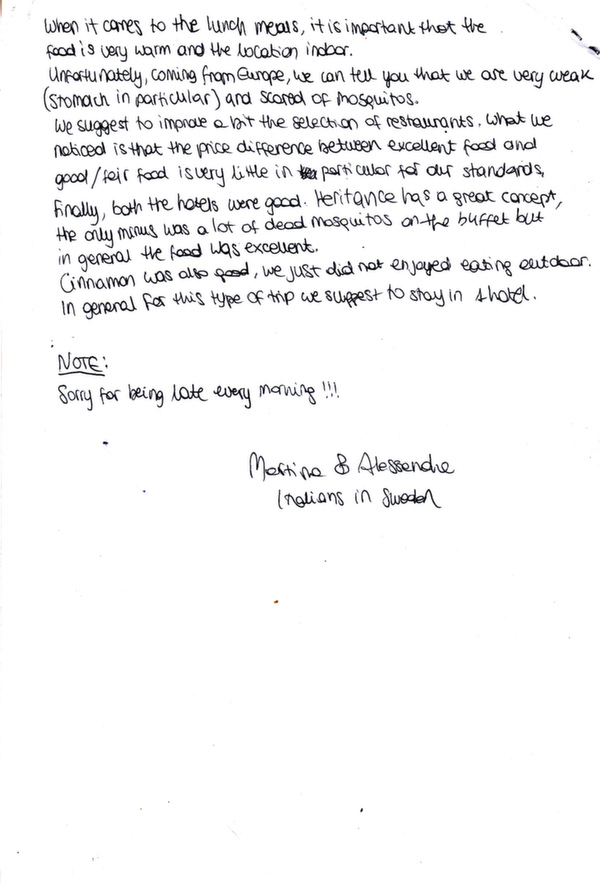 When it comes to the lunch meals, it is important that the
food is very warm and the location indoor.
Unfortunately, coming from Europe, we can tell you that we are very weak
(stomach in particular) and scared of mosquitos.
We suggest to improve a bit the selection of restaurants. What we
noticed is that the price difference between excellent food and
good/fair food is very little in particular for our standards.
Finally, both the hotels were good. Heritance has a great concept,
the only minus was a lot of dead mosquitos on the buffet but
in general the food was excellent.
Cinnamon was also good, we just did not enjoyed eating outdoor.
In general for this type of trip we suggest to stay in 1 hotel.
NOTE:
Sorry for being late every morning !!!
Martina & Alessandro
Italians in Sweden